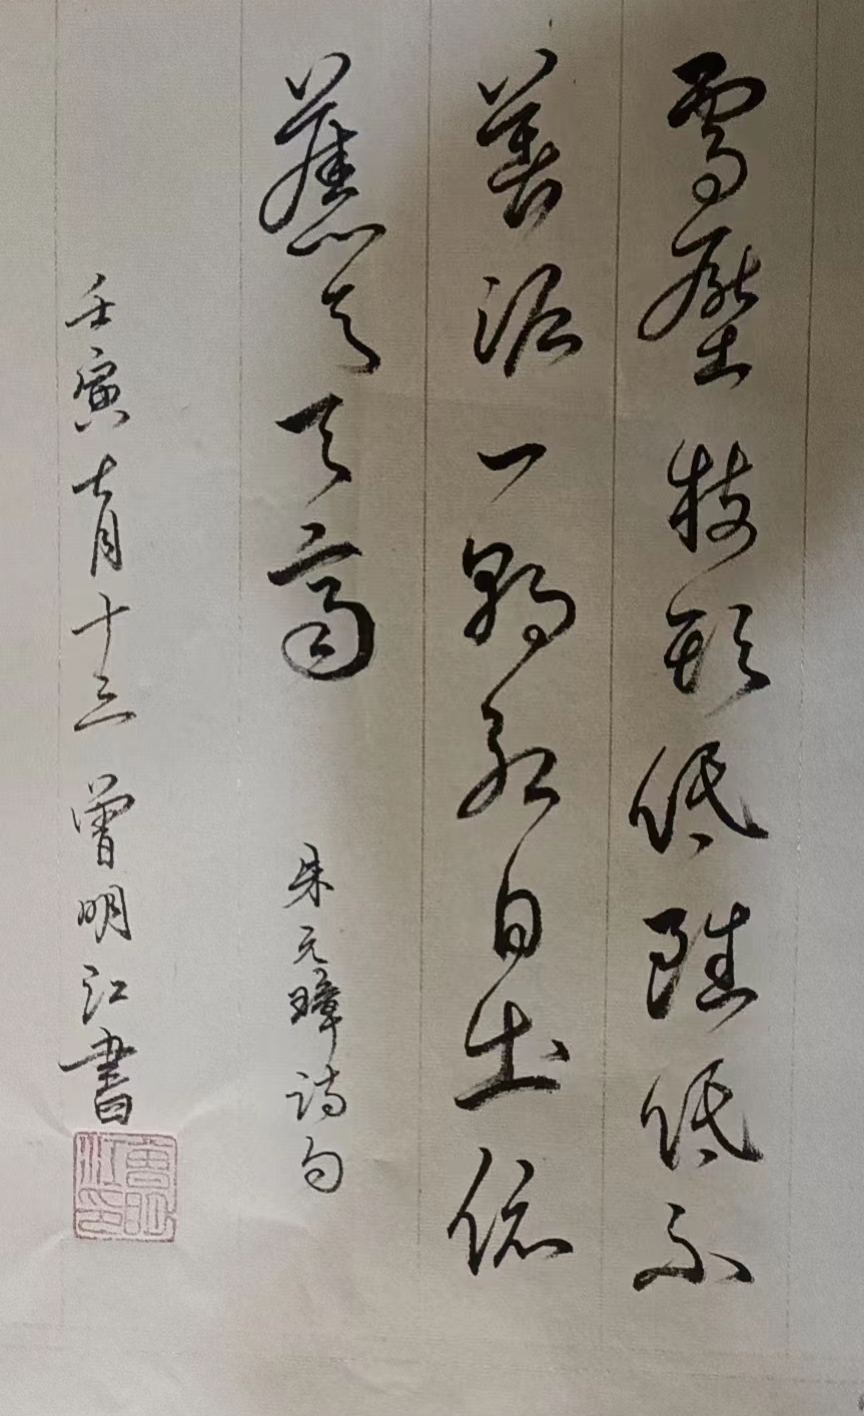 雪壓枝頭低雖低不
著泥一朝紅日出依
舊与天齊
朱元璋詩句
壬寅七月十三曾明江書